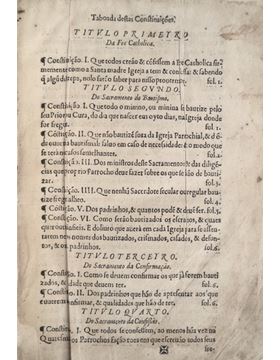 Tabooda destas Constituições.
TITVLO PRIMEYRO
Da Fee Catholica.
¶ Constituição. I. Que todos creão & cõfessem a Fee Catholica fir-
memente como a Santa madre Igreja a tem & confessa: & sabendo
q̃ algũ discrepa, nolo fação saber para nisso
fol. 1.
TITVLO SEGVNDO.
Do Sacramento do Bautismo.
¶ Constituição. I. Que todo o minino, ou minina se bautize pelo
seu Prior ou Cura, do dia que nascer em oyto dias, na Igreja donde
for freigues. fol. 2.
¶ Constituição. II. Que não bautizé fora da Igreja Parrochial, & dẽ
ordẽ no bautismo: saluo em caso de necessidade: & o modo que
se terá nos casos semelhantes. fol. 3.
¶ Cõstituição. III. Dos ministros deste Sacramento: & das diligẽ-
cias que o Parrocho deue fazer sobre os que se hão de bautizar.
fol. 3.
¶ Constituição. IIII. Que nenhũ Sacerdote secular ou regular bauti-
ze freigues alheo. fol. 4.
¶ Constituição. V. Dos padrinhos, & quantos podẽ & deuẽ ser. fol. 5.
¶ Cõstituição. VI. Como serão bautizados os escrauos, & quaes-
quer infieis. E do liuro que auerá em cada Igreja para se assen-
tarem os nomes dos bautizados, crismados, casados, & defun-
tos, & os padrinhos. fol. 6.
TITVLO TERCEIRO.
Do Sacramento da Confirmação.
¶ Constituição. I. Como se deuem confirmar os que já forem bauti
zados, & dade que deuem ter. fol. 6.
¶ Constituição. II. Dos padrinhos que hão de apresentar aos que
se confirmar, & qualidades que hão de ter. fol. 6.
TITVLO QVARTO.
Do Sacramento da Confissão.
¶ Constituição. I. Que todos se confessem, ao menos hũa vez na
Quaresma: & os Parrochos fação roes em que escreuão todos seus